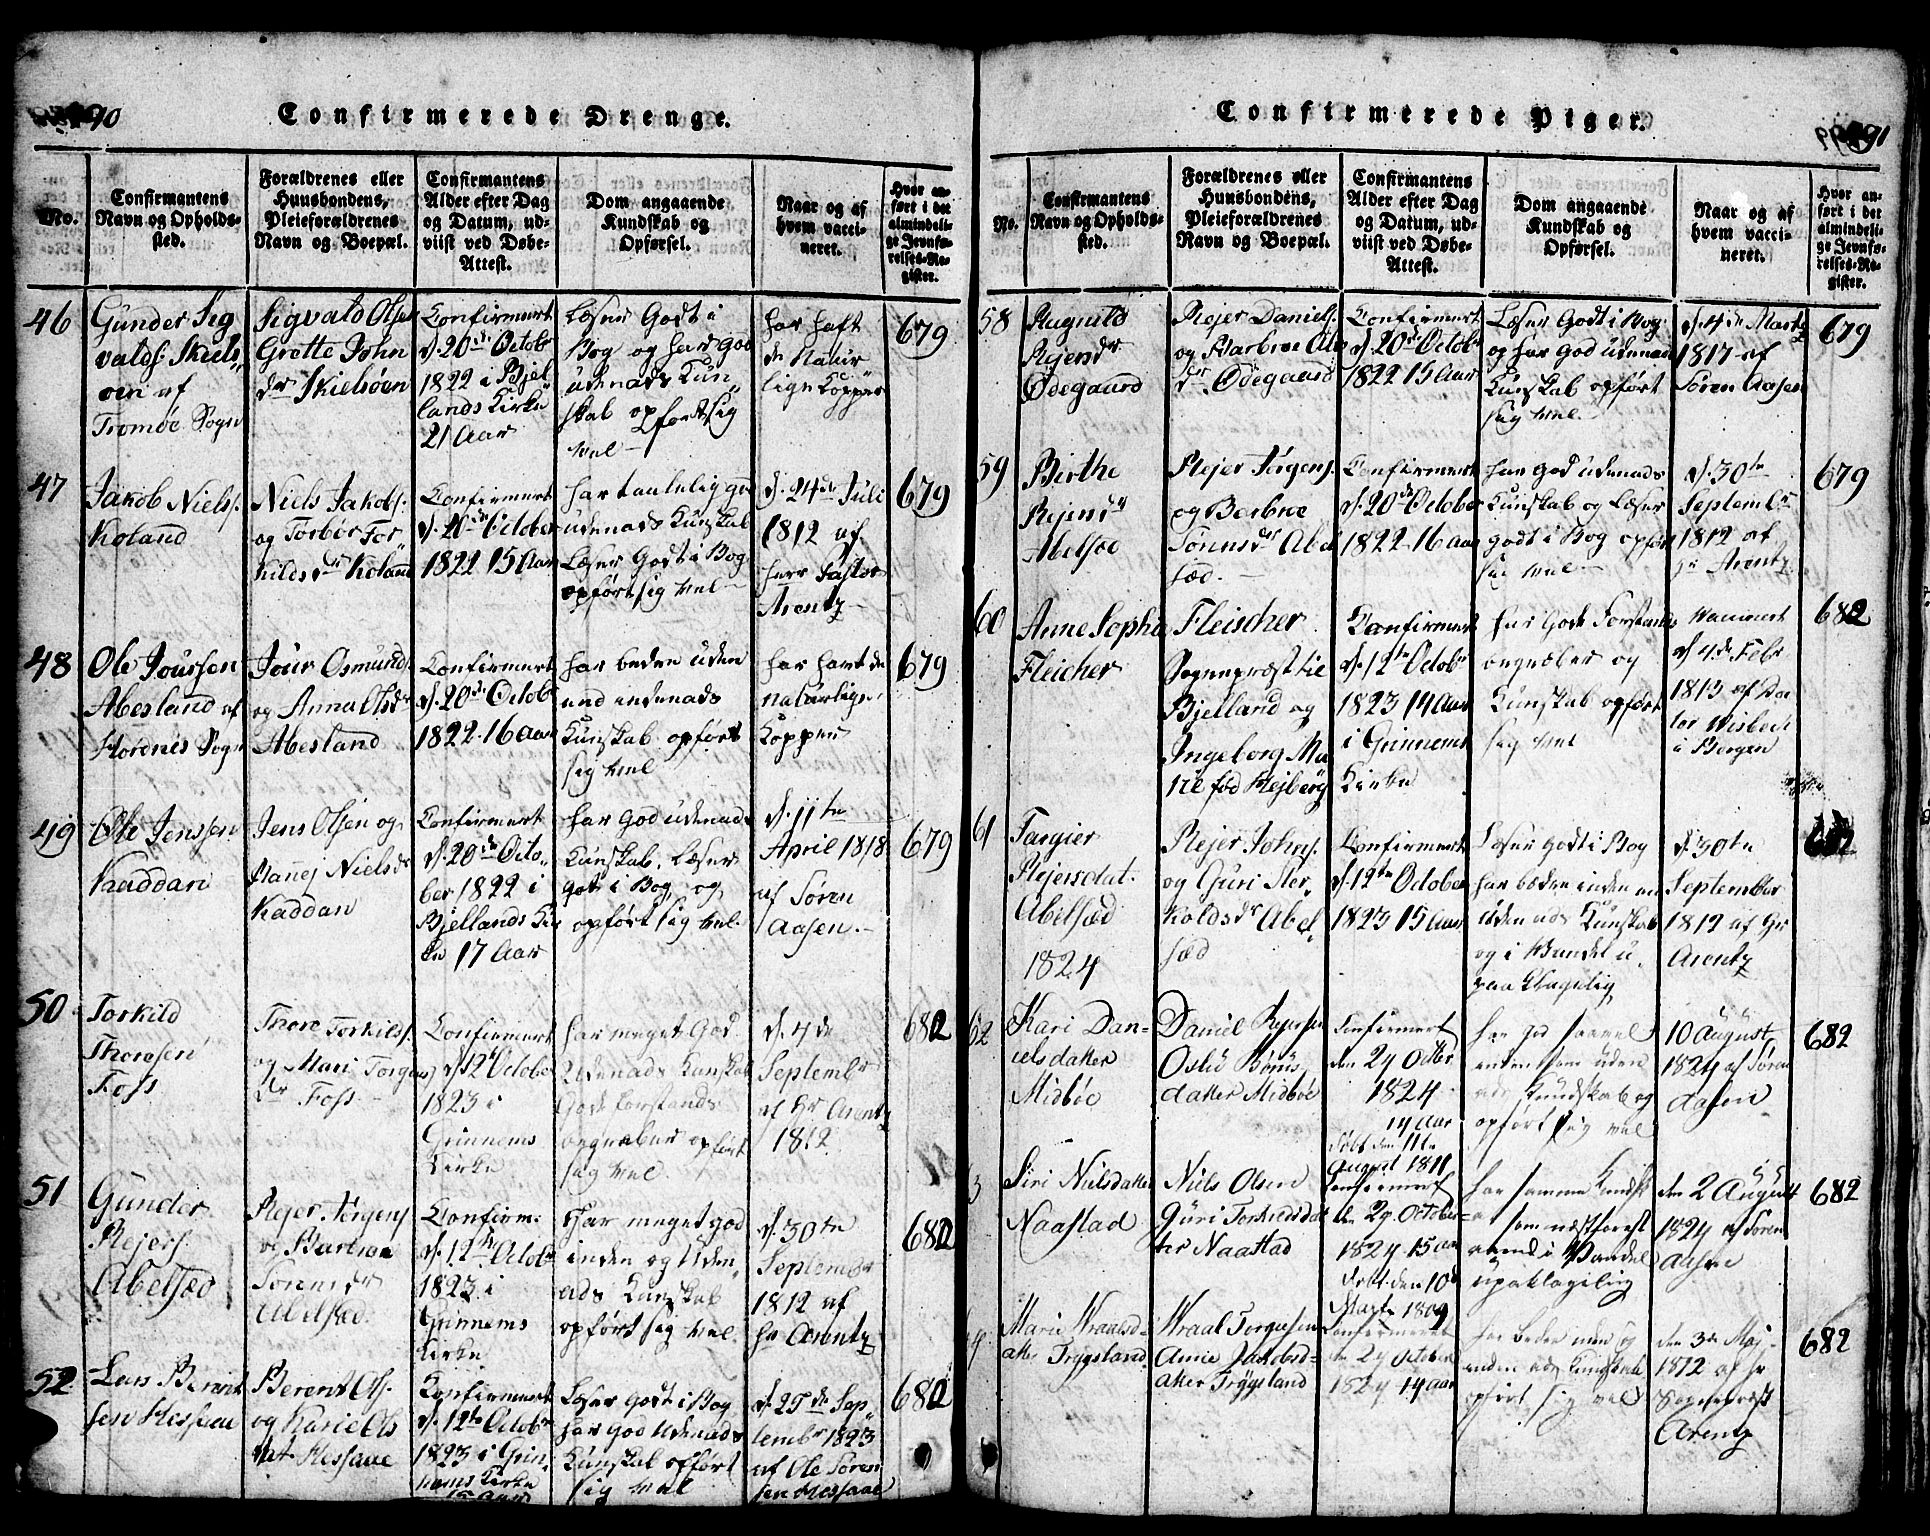 190
Confirmerede Drenge.
No.
Confirmantens
Navn og Opholds-
sted.
Forældrenes eller
Huusbondens,
Pleieforældrenes
Navn og Boepæl.
Confirmantens
Alder efter Dag
og Datum, ud-
viist ved Døbe-
Attest.
Dom angaaende
Kundskab og
Opførsel.
Naar og af
hvem vacci-
neret.
Hvor an-
ført i det
almindeli-
ge Jevnfø-
relses-Re-
gister.
46
Gunder Sig
valds: Skiels„
øen af
Tromøe Sogn
Sigvald Olsen
Grette John
dr Skielsøen
Confirmert
d. 20de Octobr
1822 i Bjel
lands Kirke
21 Aar
Læser Godt i
Bog og har god
udenads Kun„
skab opført sig
vel
har haft
de Natur„
lige Kopper
679
47
Jakob Niels:
Koland
Niels Jakobs:
og Torbør Tor„
kilds dr Koland
Confirmert
d. 20de October
1822 15 Aar
har taalelig god
udenads Kunskab
Læser Godt i Bog
opført sig vel
d. 24de Juli
1812 af
herr Pastor
Arentz
679
48
Ole Joursen
Abesland af
Hornnes Sogn
Jour Osmunds:
og Anna Olsdr
Abesland
Confirmert
d. 20de Octobr
1822 16 Aar
har beden uden
end endenads
Kunskab opført
sig vel
har havt de
naturlige
Kopper
679
49
Ole Jenssen
Kaddan
Jens Olsen og
Ranej Nielsdr
Kaddan
Confirmert
d. 20de Octo„
ber 1822 i
Bjellands Kir
ke 17 Aar
har god udenads
Kunskab. Læser
got i Bog og
opført sig vel.
d. 11te
April 1818
af Søren
Aasen.
679
50
Torkild
Thoresen
Foss
Thore Torkilds:
og Mari Torgens
dr Foss
Confirmert
d. 12te October
1823 i
Grinnems
Kirke
har meget God
Udenads Kunskab
Godt Forstands
ævgnaber opført
sig vel
d. 4de
Septembr
af Hr Arentz
1812
682
51
Gunder
Rejers:
Abelsæd
Rejer Jørgens
og Barbroe
Sørensdr
Abelsæd.
Confirm:
d. 12te Octob
1823 i
Grinnems
Kirke
Har meget god
inden og Uden„
ads Kunskab
opført sig vel.
d. 30te
Septembr
1812 af
hr Arentz
682
52
Lars Berent
sen Hessaae
Berent Ols:
og Karie Ols
datr Hessaae
Confirmert
d. 12te Octobr
1823 i Grin„
nems Kirke
15 Aar
Læser Godt i Bog
har god Udenads
Kunskab opført
sig vel
d. 25de Sep„
tembr 1823
af Ole Søren
sen Hessaae
682
191
Confirmerede Piger.
No.
Confirmantens
Navn og Opholds-
sted.
Forældrenes eller
Huusbondens,
Pleieforældrenes
Navn og Boepæl.
Confirmantens
Alder efter Dag
og Datum, ud-
viist ved Døbe-
Attest.
Dom angaaende
Kundskab og
Opførsel.
Naar og af
hvem vacci-
neret.
Hvor an-
ført i det
almindeli-
ge Jevnfø-
relses-Re-
gister.
58
Ragnild
Rejersdr
Ødegaard
Rejer Daniels:
og Barbroe Abr
dr Ødegaard
Confirmert
d. 20de Octobr
1822 15 Aar
Læser Godt i Bog
og har God udenads
Kunskab opført
sig vel
d. 4de Marts
1817 af
Søren Aasen
679
59
Birthe
Rejersdr
Abelsæd
Rejer Jørgens:
og Barbroe
Sørensdr Abel
sæd.
Confirmert
d. 20de October
1822 16 Aar
har God udenads
Kunskab og Læser
godt i Bog opført
sig vel
d. 30te
Septembr
1812 af
Hr Arentz
679
60
Anne Sophie
Fleicher
Fleischer
Sognepræst til
Bjelland og
Ingeborg Ma
rie fød Rejberg
Confirmert
d. 12te Octobr
1823 14 Aar
i Grinnems
Kirke
har Godt Forstands
ævgnæber og
Kunskab opført
sig vel
Vaccinert
d. 4de Febr
1813 af Doc
tor Wisbech
i Bergen
682
61
Targier
Rejersdat.
Abelsæd
1824
Rejer Johns:
og Guri Ster„
kolds dr Abel„
sæd
Confirmert
d. 12te October
1823 15 Aar
Læser godt i Bog
har beden inden en
uden ads Kunskab
og i Vandel u„
paa Klagelig
d. 30te
September
1812 af Hr
Arentz
682
62
Kari Dan-
ielsdatter
Midbøe
Daniel Rejersen
Oslu Bønis
datter Midbøe
Confirmert
den 24 Octbr
1824
14 aar
født den 11te
August 1811
har god saavel
indensom uden
ads Kundskab og
opført sig vel
10 August
1824 af Søren
Aasen
682
3
Siri Nielsdatter
Naastad
Niels Olsen
Guri Torkildsdat
ter Naastad
Confirmert
den 29. October
1824 15 aar
født. den 10de
Marts 1809
har samme Kundsk
som næstforest
aaend i Vandel
upaaklagelig
den 2 August
1824 af Søren
Aasen
682
4
Marie Wraalsd-
atter Trygsland
Wraal Torgiersen
Anne Jacobsd-
atter Trygsland
Confirmeret
den 24 October
1824 14 aar
har beden uden og
inden ads Kundskab
opført sig vel
den 3de Maj
1812 af hr
Sognepræst
Arentz
682